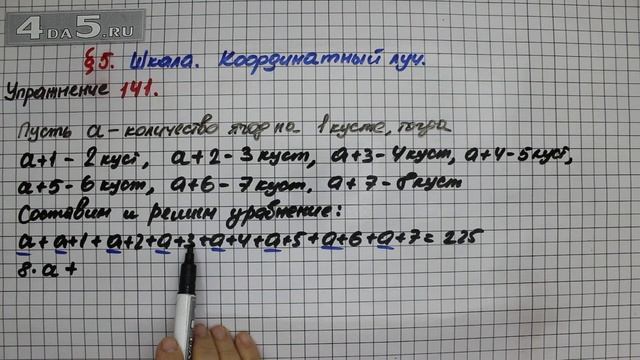 4DA5.RU
§5. Шкала. Координатный луч.
Упражнение 141.
Пусть a – количество ягод на 1 кусте, тогда
a+1 – 2 куст, a+2 – 3 куст, a+3 – 4 куст, a+4 – 5 куст,
a+5 – 6 куст, a+6 – 7 куст, a+7 – 8 куст
Составим и решим уравнение:
a+a+1+a+2+a+3+a+4+a+5+a+6+a+7=225
8·a+